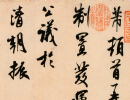 芾頓首再
制置發運
公議於
清朝振